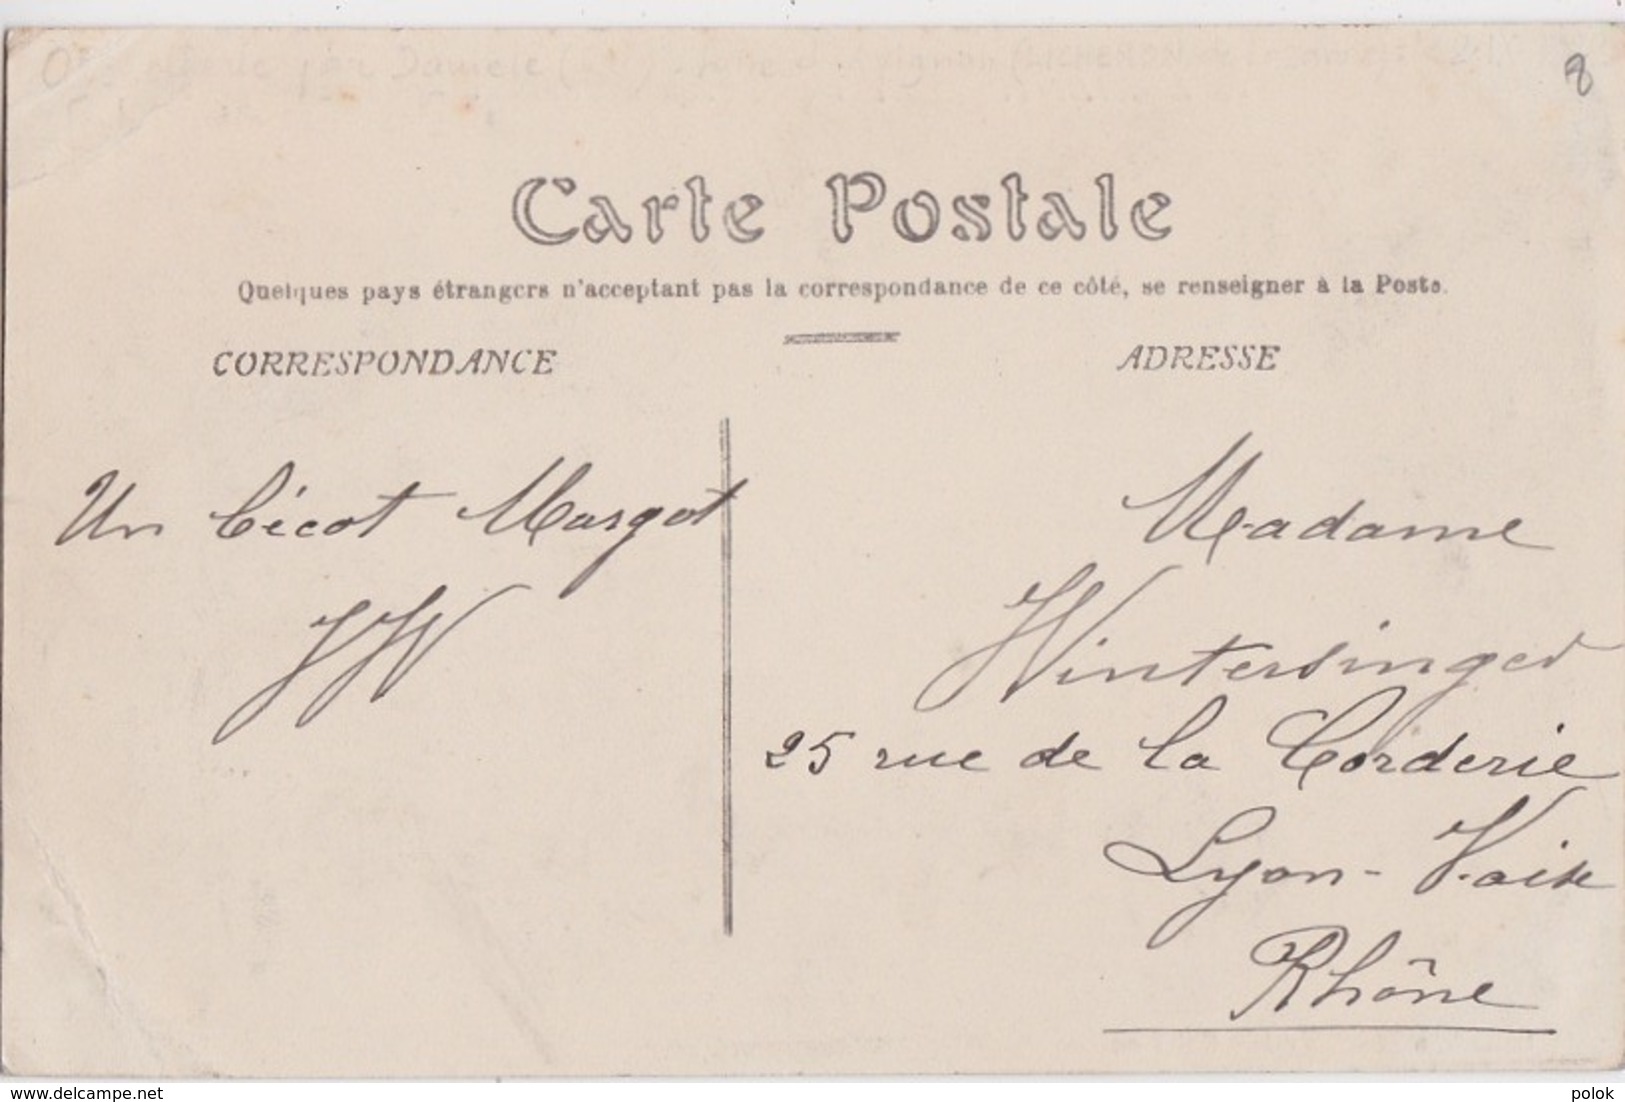 8
par Daniele
Carte Postale
Quelques pays étrangers n'acceptant pas la correspondance de ce côté, se renseigner à la Poste.
CORRESPONDANCE
ADRESSE
Un bécot Margot
JW
Madame
Wintersinger
25 rue de la Corderie
Lyon-Vaise
Rhône
www.delcampe.net
polok